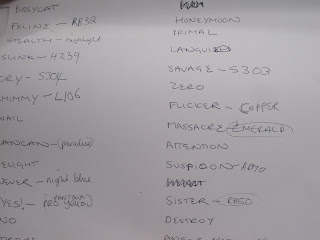 PUSSYCAT
FELINE - R832
STEALTH - highlight
SLINK - H239
CRY - S304
SHIMMY - L106
NAIL
CANCAN - (paradise)
DELIGHT
night blue
YES! - PRO YELLOW
PANTONE
NO
HONEYMOON
PRIMAL
LANGUID
SAVAGE - S303
ZERO
FLICKER - COPPER
MASSACRE EMERALD
ATTENTION
SUSPICION - A070
SISTER - R850
DESTROY